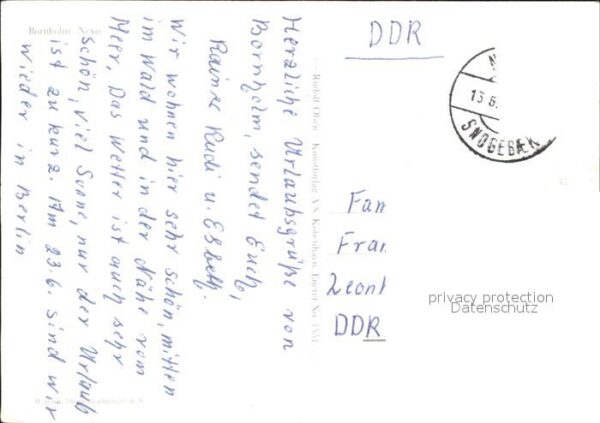 Bornholm: Nexø
Herzliche Urlaubsgrüße von
Bornholm, sendet Euch,
Rainer Rudi u. Elsbeth.
Wir wohnen hier sehr schön, mitten
im Wald und in der Nähe vom
Meer, Das Wetter ist auch sehr
schön, viel Sonne, nur der Urlaub
ist zu kurz. Am 23.6. sind wir
wieder in Berlin
Rudolf Olsen Kunstforlag A/S København Eneret No.
DDR
13.6.
SNOGEBÆK
Fam
Fran
Leont
DDR
privacy protection
Datenschutz